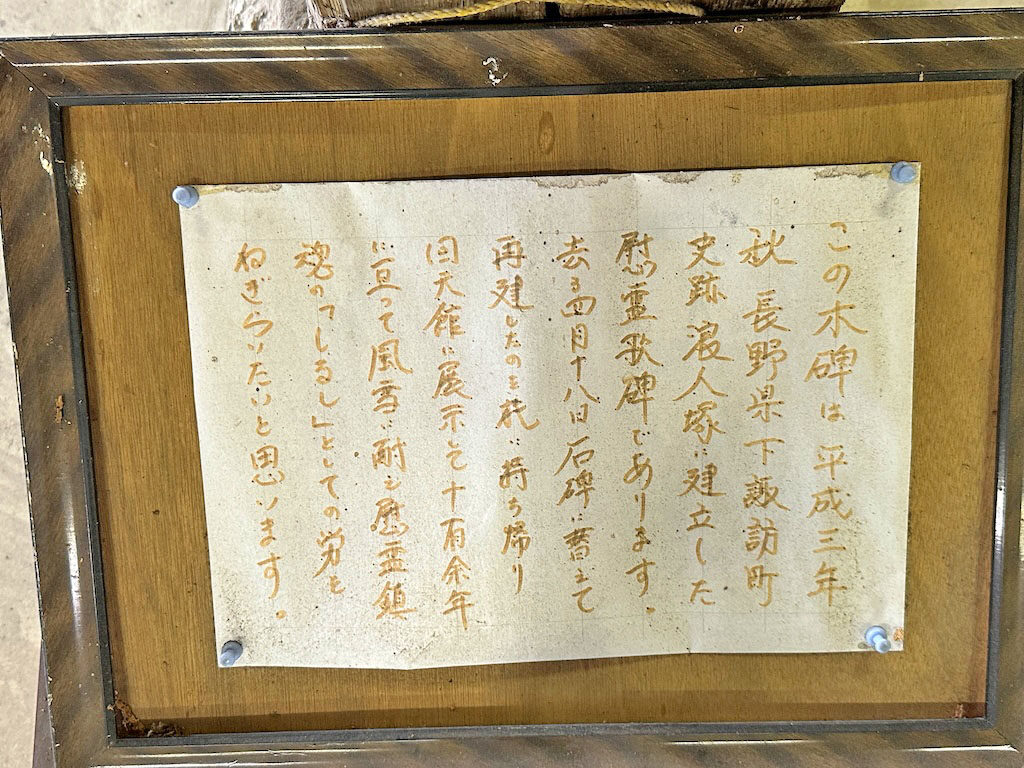 この木碑は平成三年
秋 長野県下諏訪町
史跡浪人塚に建立した
慰霊歌碑であります。
去る四月十八日石碑に替えて
再建したのを機に持ち帰り
回天館に展示して十有余年
に亘って風雪に耐え慰霊鎮
魂の「しるし」としての労を
ねぎらいたいと思います。